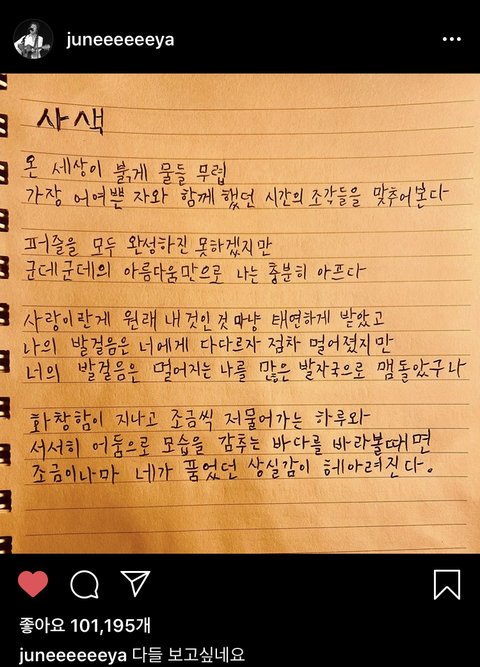 juneeeeeeya
사색
온 세상이 붉게 물들 무렵
가장 어여쁜 자와 함께 했던 시간의 조각들을 맞추어본다
퍼즐을 모두 완성하진 못하겠지만
군데군데의 아름다움만으로 나는 충분히 아프다
사랑이란게 원래 내것인것 마냥 태연하게 받았고
나의 발걸음은 너에게 다다르자 점차 멀어졌지만
너의 발걸음은 멀어지는 나를 많은 발자국으로 맴돌았구나
화창함이 지나고 조금씩 저물어가는 하루와
서서히 어둠으로 모습을 감추는 바다를 바라볼때면
조금이나마 네가 품었던 상실감이 헤아려진다.
좋아요 101,195개
juneeeeeeya 다들 보고싶네요